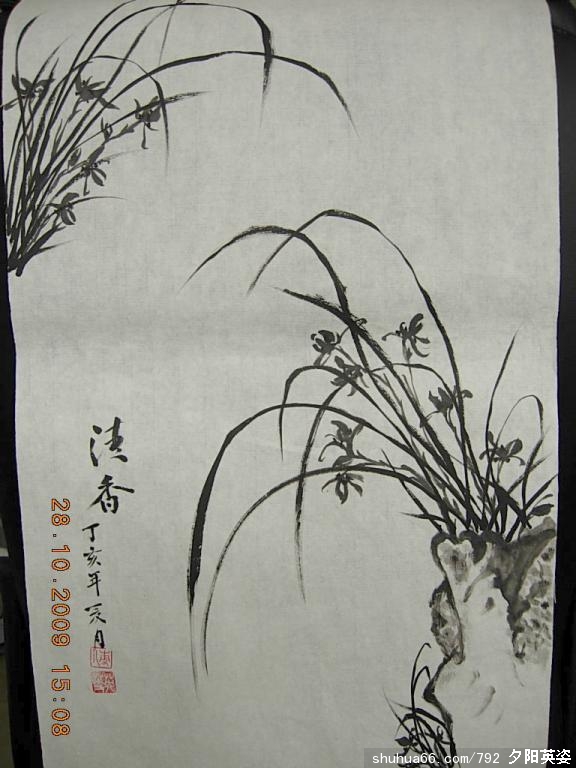 清香
丁亥年 月
28.10.2009 15:08
shuhua66.com/792 夕阳英姿